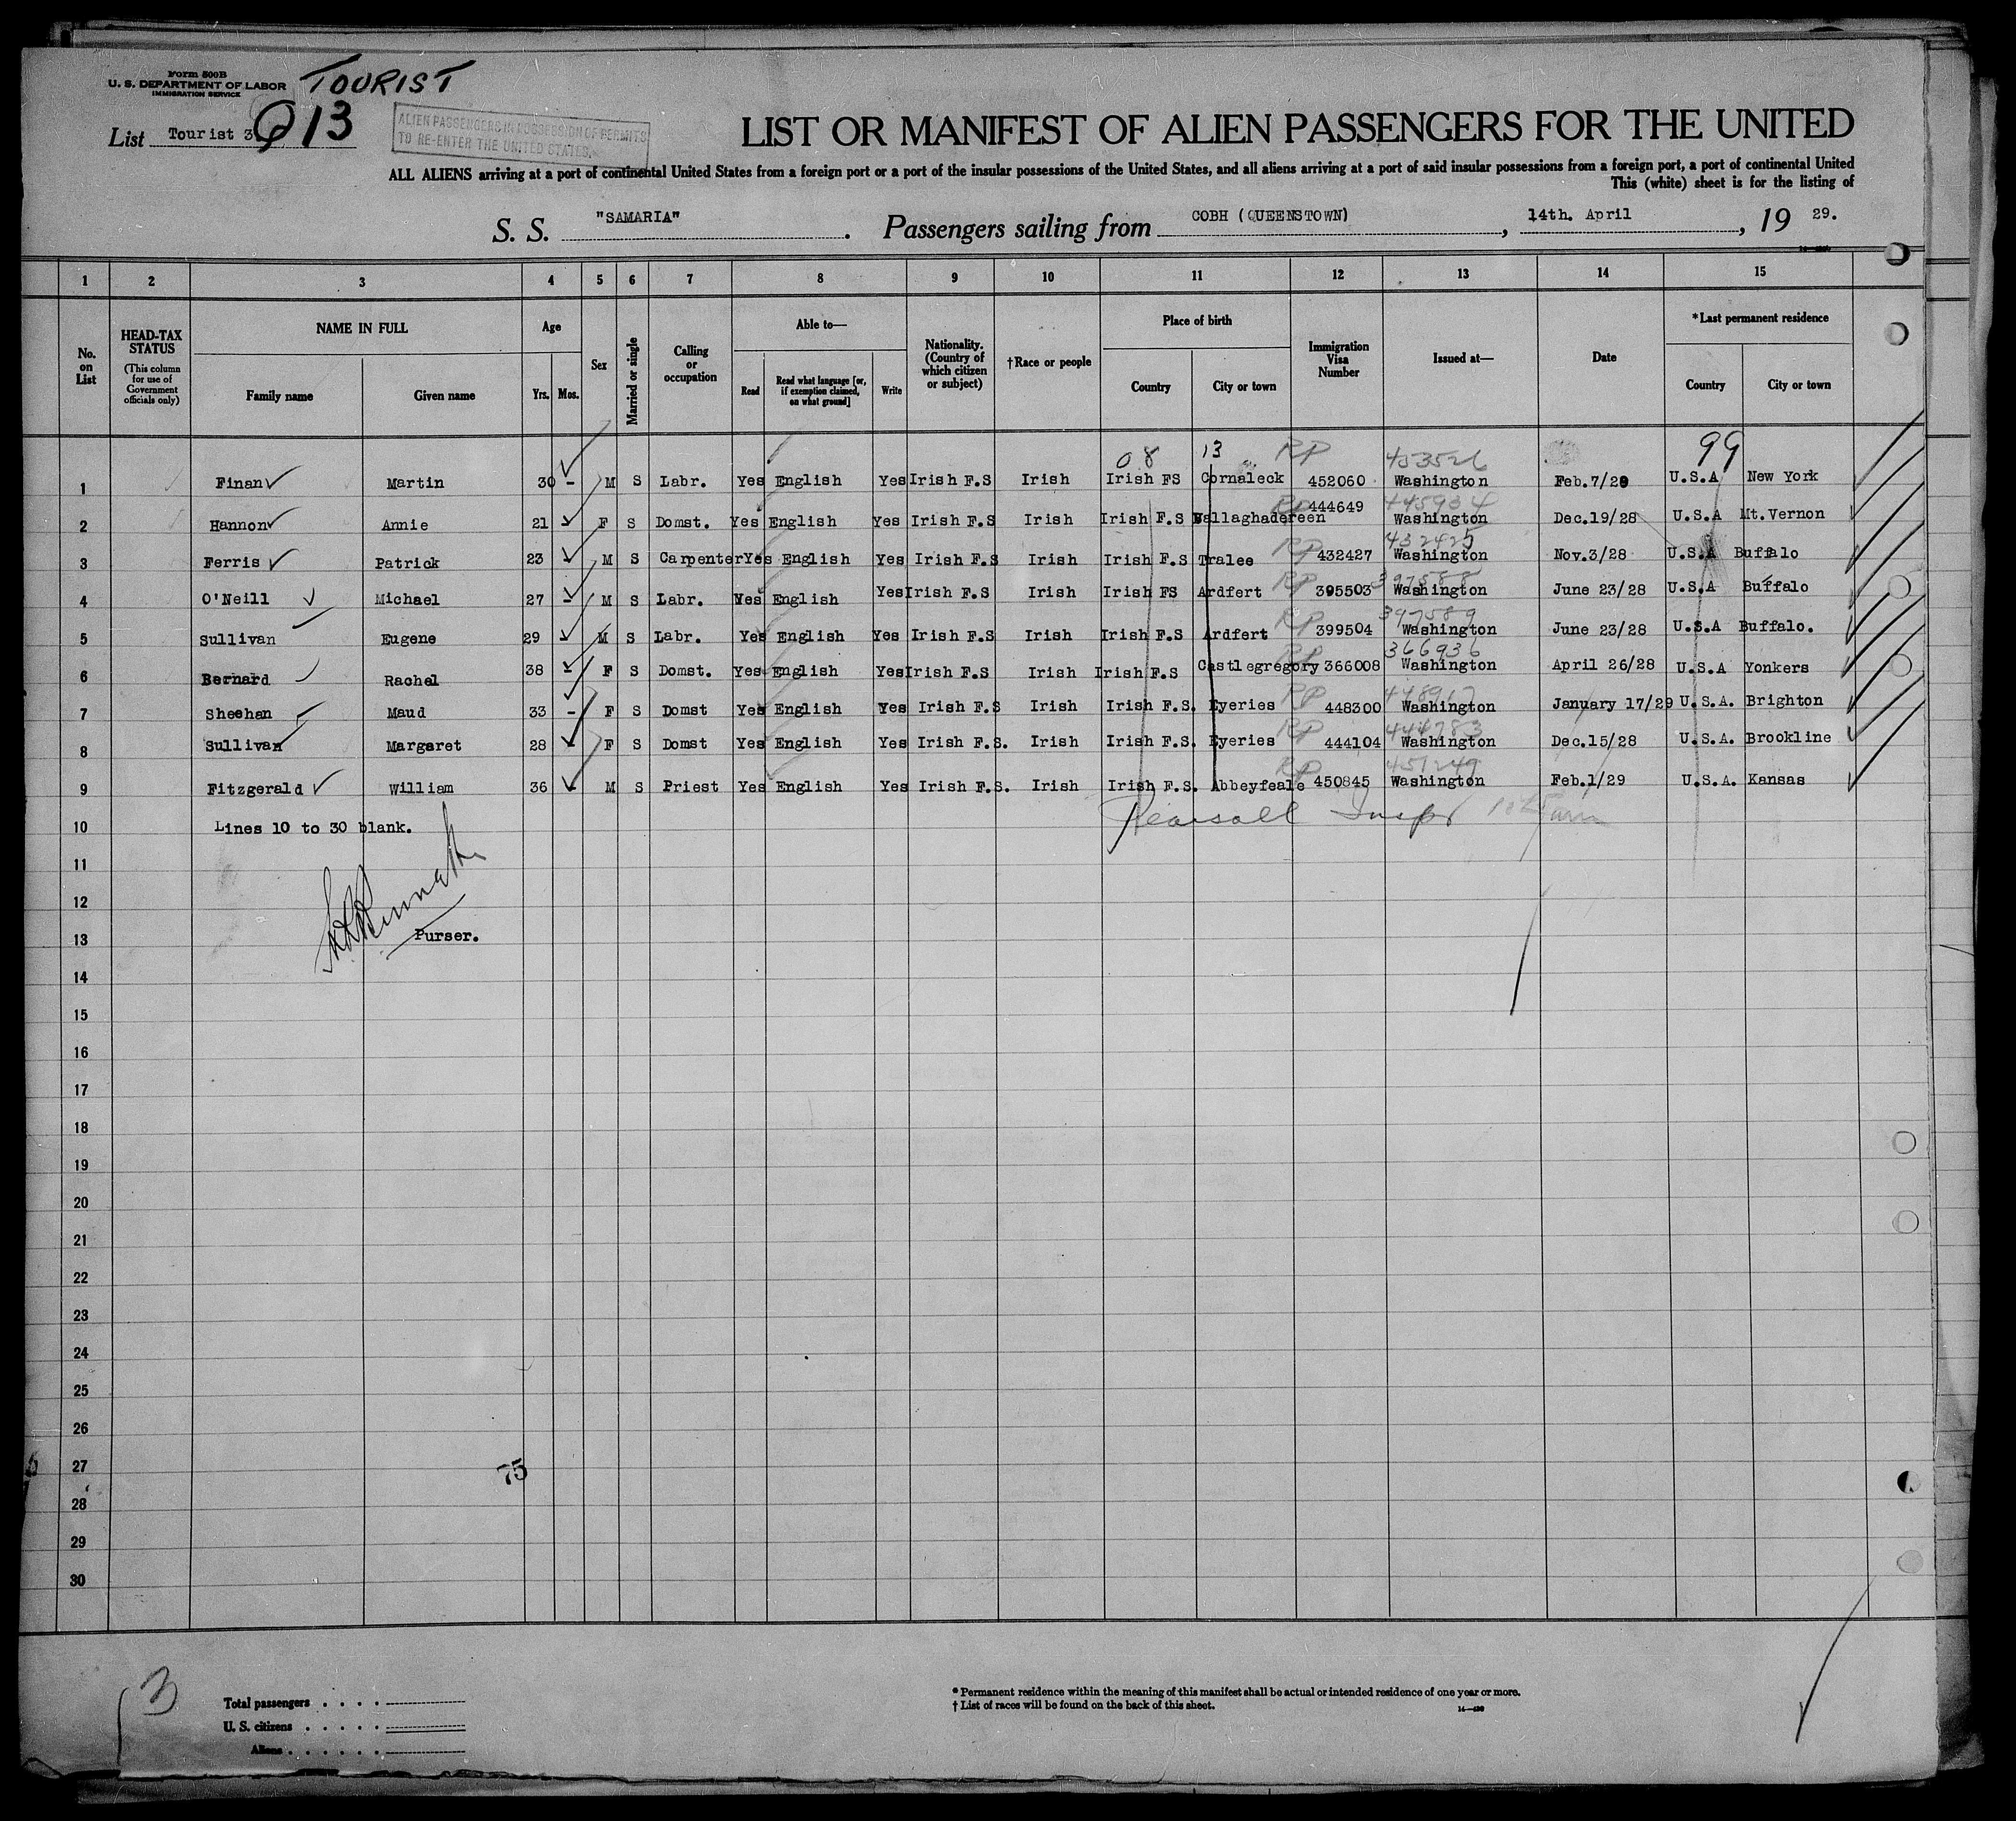 Form 500B
U. S. DEPARTMENT OF LABOR
IMMIGRATION SERVICE
TOURIST
List Tourist 3 13
ALIEN PASSENGERS IN POSSESSION OF PERMITS
TO RE-ENTER THE UNITED STATES.
LIST OR MANIFEST OF ALIEN PASSENGERS FOR THE UNITED
ALL ALIENS arriving at a port of continental United States from a foreign port or a port of the insular possessions of the United States, and all aliens arriving at a port of said insular possessions from a foreign port, a port of continental United
This (white) sheet is for the listing of
S. S. "SAMARIA" . Passengers sailing from COBH (QUEENSTOWN) , 14th. April , 19 29.
1 2 3 4 5 6 7 8 9 10 11 12 13 14 15
No. on List
HEAD-TAX STATUS (This column for use of Government officials only)
NAME IN FULL Family name Given name
Age Yrs. Mos.
Sex
Married or single
Calling or occupation
Able to— Read Read what language [or, if exemption claimed, on what ground] Write
Nationality. (Country of which citizen or subject)
†Race or people
Place of birth Country City or town
Immigration Visa Number
Issued at—
Date
*Last permanent residence Country City or town
08 13 RP 453526 99
1 Finan Martin 30 - M S Labr. Yes English Yes Irish F.S Irish Irish FS Cornaleck 452060 Washington Feb.7/29 U.S.A New York
RP 445934
2 Hannon Annie 21 F S Domst. Yes English Yes Irish F.S Irish Irish F.S Ballaghadereen 444649 Washington Dec.19/28 U.S.A Mt.Vernon
RP 432425
3 Ferris Patrick 23 M S Carpenter Yes English Yes Irish F.S Irish Irish F.S Tralee 432427 Washington Nov.3/28 U.S.A Buffalo
RP 397588
4 O'Neill Michael 27 - M S Labr. Yes English Yes Irish F.S Irish Irish FS Ardfert 395503 Washington June 23/28 U.S.A Buffalo
RP 397589
5 Sullivan Eugene 29 M S Labr. Yes English Yes Irish F.S Irish Irish F.S Ardfert 399504 Washington June 23/28 U.S.A Buffalo.
RP 366936
6 Bernard Rachel 38 F S Domst. Yes English Yes Irish F.S Irish Irish F.S Castlegregory 366008 Washington April 26/28 U.S.A Yonkers
RP 448967
7 Sheehan Maud 33 - F S Domst Yes English Yes Irish F.S Irish Irish F.S. Eyeries 448300 Washington January 17/29 U.S.A. Brighton
RP 444783
8 Sullivan Margaret 28 F S Domst Yes English Yes Irish F.S. Irish Irish F.S. Eyeries 444104 Washington Dec.15/28 U.S.A. Brookline
RP 451249
9 Fitzgerald William 36 M S Priest Yes English Yes Irish F.S. Irish Irish F.S. Abbeyfeale 450845 Washington Feb.1/29 U.S.A. Kansas
Pearsall Inspr
10 Lines 10 to 30 blank.
11
12
13 Purser.
14
15
16
17
18
19
20
21
22
23
24
25
26
27 75
28
29
30
3
Total passengers
U. S. citizens
Aliens
* Permanent residence within the meaning of this manifest shall be actual or intended residence of one year or more.
† List of races will be found on the back of this sheet.